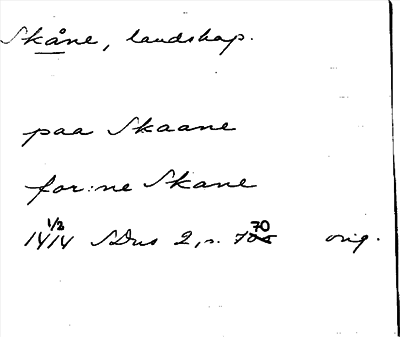 Skåne, landskap.
paa Skaane
for:ne Skane
1/2 70
1414 SDns 2, s. orig.